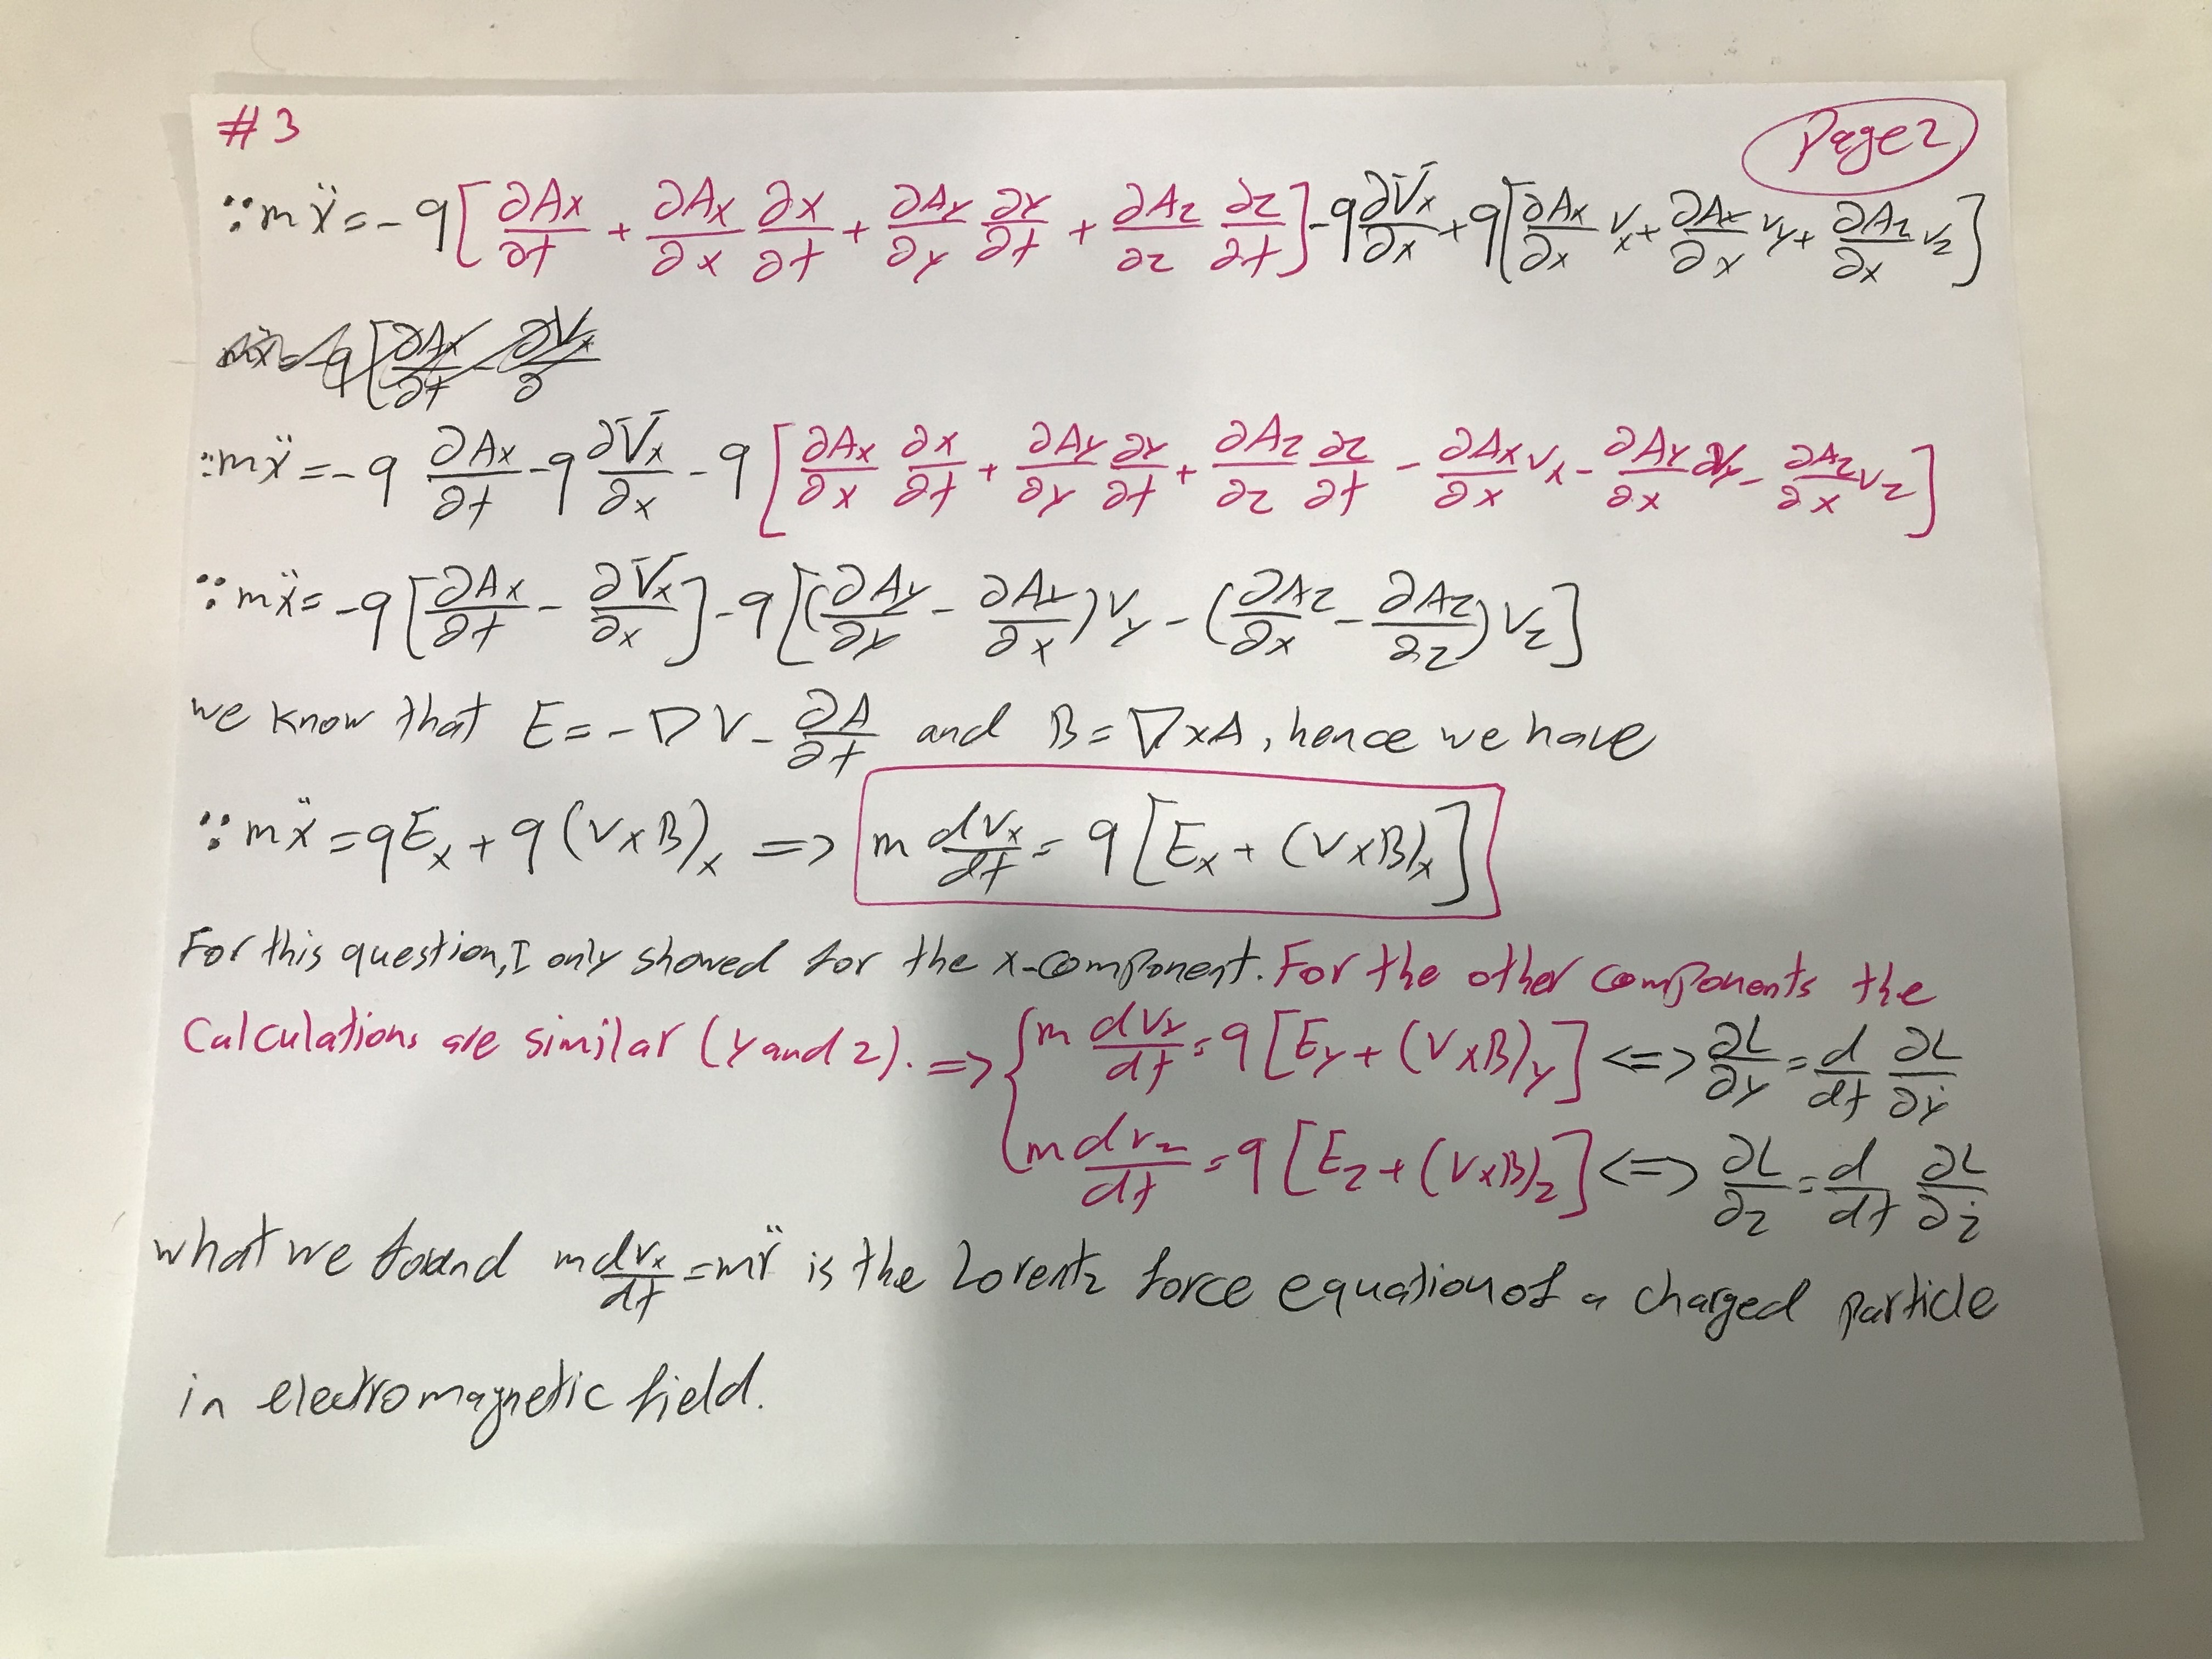 #3
Page 2
∵ mẍ = -q[∂Ax/∂t + ∂Ax/∂x ∂x/∂t + ∂Ay/∂y ∂y/∂t + ∂Az/∂z ∂z/∂t] - q ∂V̄x/∂x + q[∂Ax/∂x Vx + ∂Ax/∂x Vy + ∂Az/∂x Vz]
∵ mẍ = -q ∂Ax/∂t - q ∂V̄x/∂x - q[∂Ax/∂x ∂x/∂t + ∂Ay/∂y ∂y/∂t + ∂Az/∂z ∂z/∂t - ∂Ax/∂x Vx - ∂Ay/∂x Vy - ∂Az/∂x Vz]
∵ mẍ = -q[∂Ax/∂t - ∂V̄x/∂x] - q[(∂Ay/∂y - ∂Ay/∂x)Vy - (∂Az/∂x - ∂Az/∂z)Vz]
we know that E = -∇V - ∂A/∂t and B = ∇×A, hence we have
∵ mẍ = qEx + q(V×B)x => m dVx/dt = q[Ex + (V×B)x]
For this question, I only showed for the x-component. For the other components the
Calculations are similar (y and z). => m dVy/dt = q[Ey + (V×B)y] <=> ∂L/∂y = d/dt ∂L/∂ẏ
m dVz/dt = q[Ez + (V×B)z] <=> ∂L/∂z = d/dt ∂L/∂ż
what we found m dVx/dt = mr̈ is the Lorentz force equation of a charged particle
in electromagnetic field.